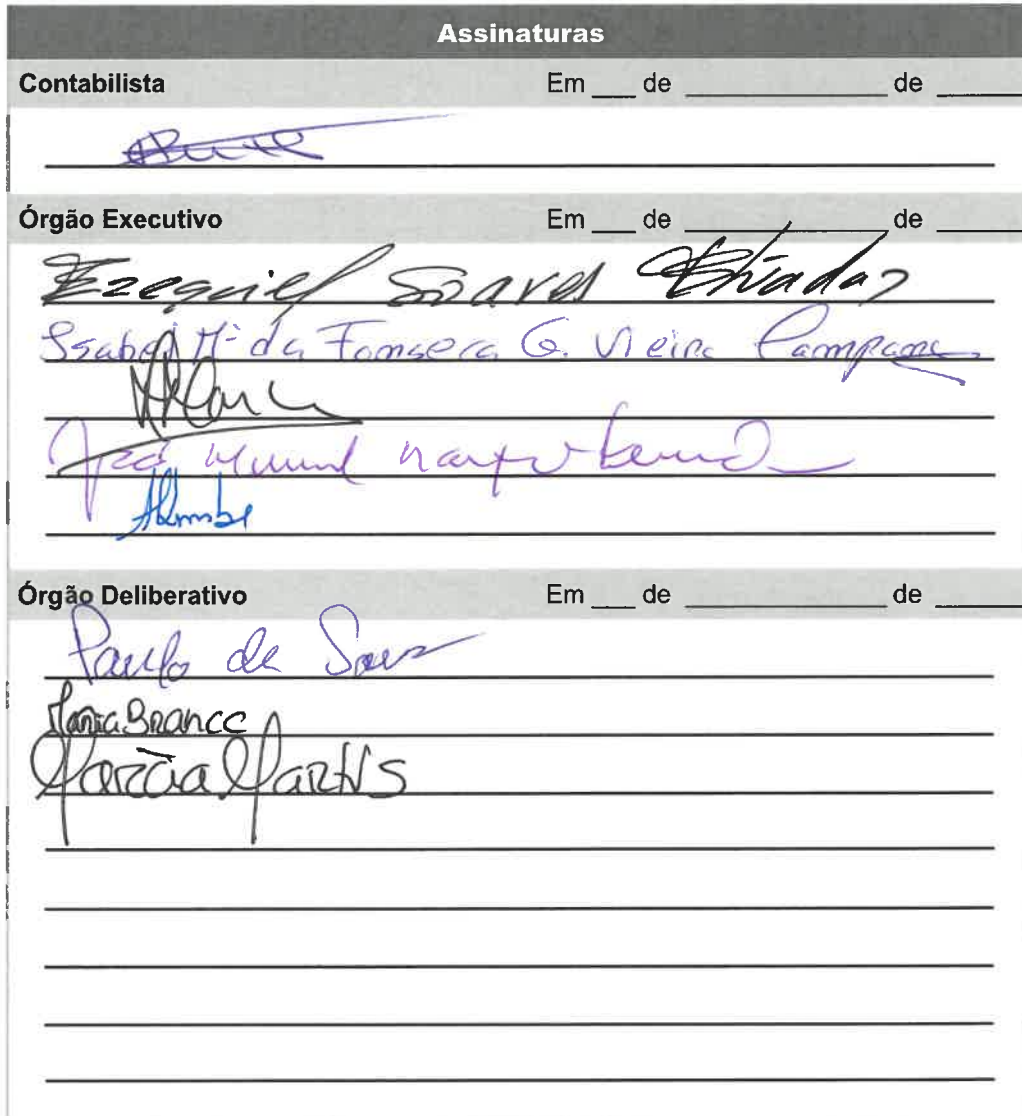 Assinaturas
Contabilista Em ___ de ______________ de ______
Órgão Executivo Em ___ de ______________ de ______
Ezequiel Soares Estrada
Isabel Mª da Fonseca G. Vieira Campane
José Manuel
Órgão Deliberativo Em ___ de ______________ de ______
Paulo de Sousa
Maria Branco
Márcia Martins